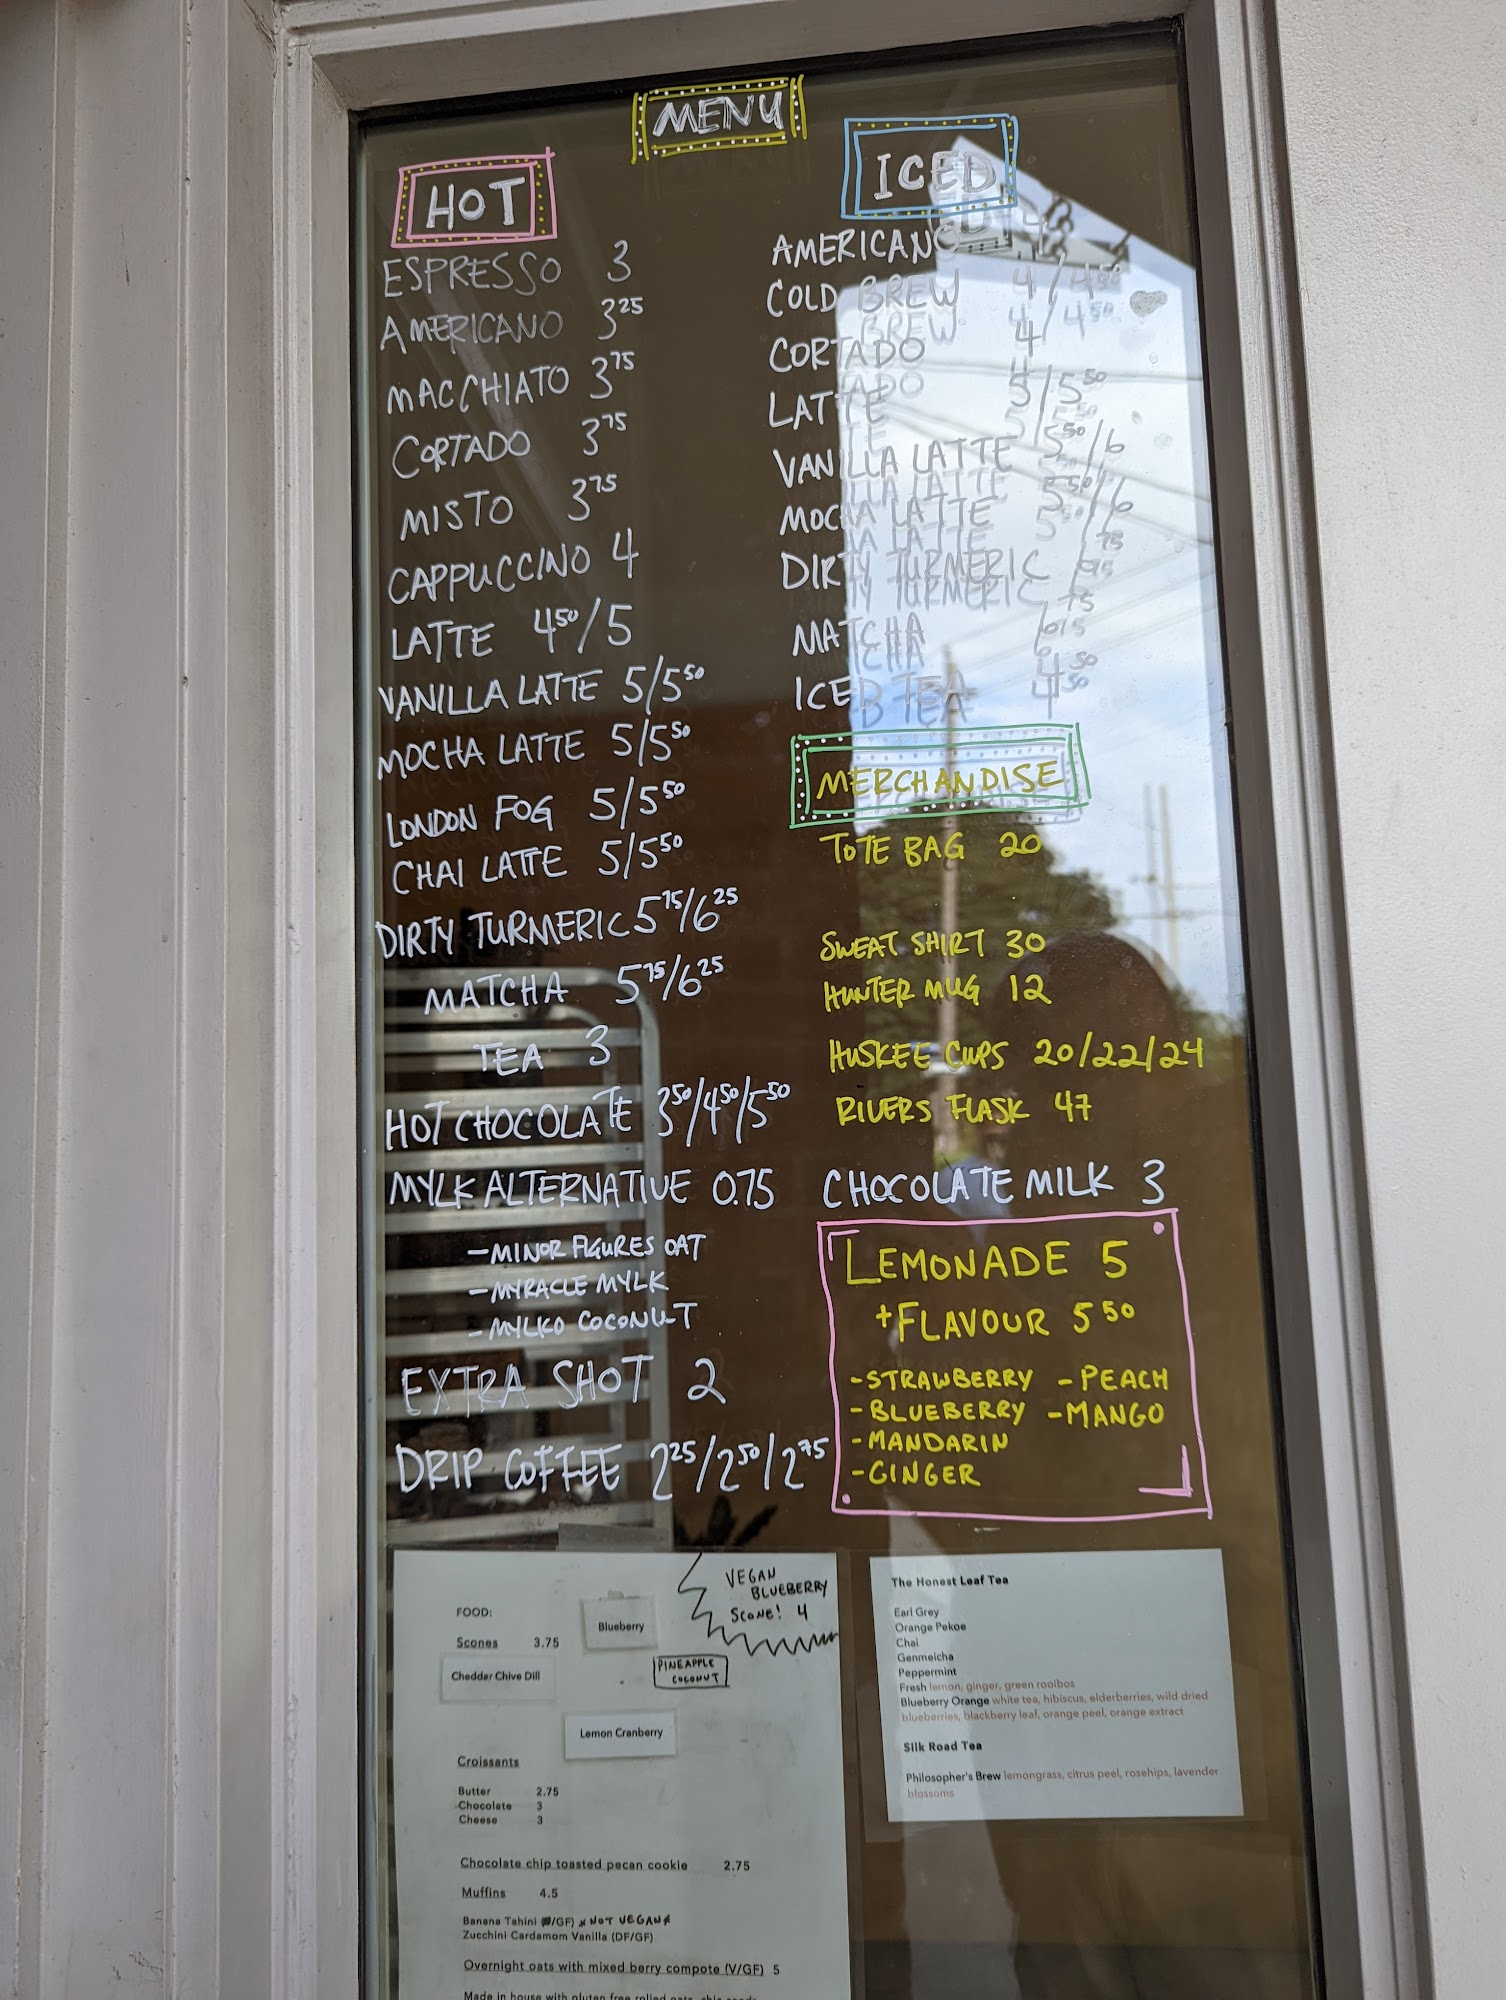 MENU
HOT
ESPRESSO 3
AMERICANO 3²⁵
MACCHIATO 3⁷⁵
CORTADO 3⁷⁵
MISTO 3⁷⁵
CAPPUCCINO 4
LATTE 4⁵⁰/5
VANILLA LATTE 5/5⁵⁰
MOCHA LATTE 5/5⁵⁰
LONDON FOG 5/5⁵⁰
CHAI LATTE 5/5⁵⁰
DIRTY TURMERIC 5⁷⁵/6²⁵
MATCHA 5⁷⁵/6²⁵
TEA 3
HOT CHOCOLATE 3⁵⁰/4⁵⁰/5⁵⁰
MYLK ALTERNATIVE 0.75
-MINOR FIGURES OAT
-MYRACLE MYLK
-MYLKO COCONUT
EXTRA SHOT 2
DRIP COFFEE 2²⁵/2⁵⁰/2⁷⁵
ICED
AMERICANO
COLD BREW 4/4⁵⁰
CORTADO 4
LATTE 5/5⁵⁰
VANILLA LATTE 5⁵⁰/6
MOCHA LATTE 5⁵⁰/6
DIRTY TURMERIC
MATCHA
ICED TEA 4⁵⁰
MERCHANDISE
TOTE BAG 20
SWEAT SHIRT 30
HUNTER MUG 12
HUSKEE CUPS 20/22/24
RIVERS FLASK 47
CHOCOLATE MILK 3
LEMONADE 5
+FLAVOUR 5⁵⁰
-STRAWBERRY -PEACH
-BLUEBERRY -MANGO
-MANDARIN
-GINGER
FOOD:
Blueberry
VEGAN
BLUEBERRY
SCONE! 4
Scones 3.75
Cheddar Chive Dill
PINEAPPLE
COCONUT
Lemon Cranberry
Croissants
Butter 2.75
Chocolate 3
Cheese 3
Chocolate chip toasted pecan cookie 2.75
Muffins 4.5
Banana Tahini /GF) *NOT VEGAN*
Zucchini Cardamom Vanilla (DF/GF)
Overnight oats with mixed berry compote (V/GF) 5
Made in house with gluten free rolled oats, chia
The Honest Leaf Tea
Earl Grey
Orange Pekoe
Chai
Genmeicha
Peppermint
Fresh lemon, ginger, green rooibos
Blueberry Orange white tea, hibiscus, elderberries, wild dried
blueberries, blackberry leaf, orange peel, orange extract
Silk Road Tea
Philosopher's Brew lemongrass, citrus peel, rosehips, lavender
blossoms